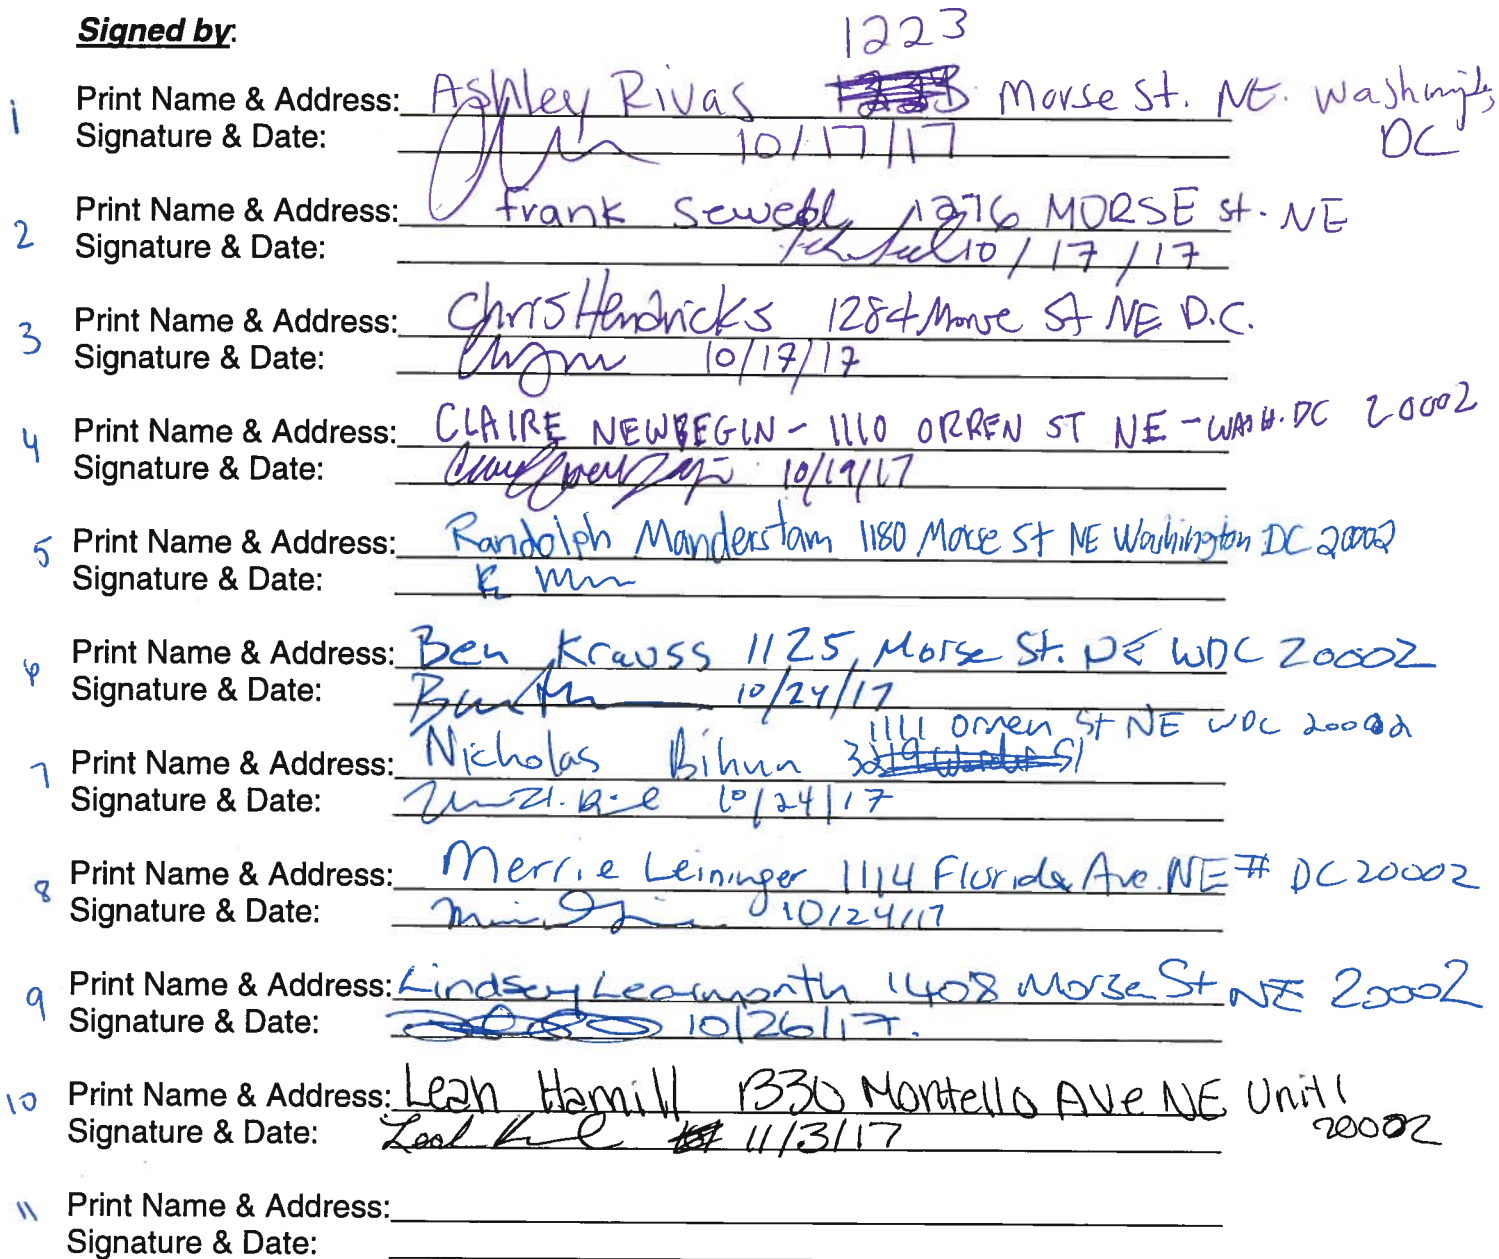 Signed by:
1223
1 Print Name & Address: Ashley Rivas Morse St. NE. Washington,
DC
Signature & Date: 10/17/17
2 Print Name & Address: Frank Sewell 1276 MORSE St. NE
Signature & Date: 10/17/17
3 Print Name & Address: Chris Hendricks 1284 Morse St NE D.C.
Signature & Date: 10/17/17
4 Print Name & Address: CLAIRE NEWBEGIN - 1110 ORREN ST NE - WASH. DC 20002
Signature & Date: 10/19/17
5 Print Name & Address: Randolph Manderstam 1180 Morse St NE Washington DC 20002
Signature & Date:
6 Print Name & Address: Ben Krauss 1125 Morse St. NE WDC 20002
Signature & Date: 10/24/17
1111 Orren St NE WDC 20002
7 Print Name & Address: Nicholas Bihun
Signature & Date: 10/24/17
8 Print Name & Address: Merrie Leininger 1114 Florida Ave. NE # DC 20002
Signature & Date: 10/24/17
9 Print Name & Address: Lindsey Learmonth 1408 Morse St NE 20002
Signature & Date: 10/26/17.
10 Print Name & Address: Leah Hamill 1330 Montello Ave NE Unit 1
20002
Signature & Date: 11/3/17
11 Print Name & Address:
Signature & Date: